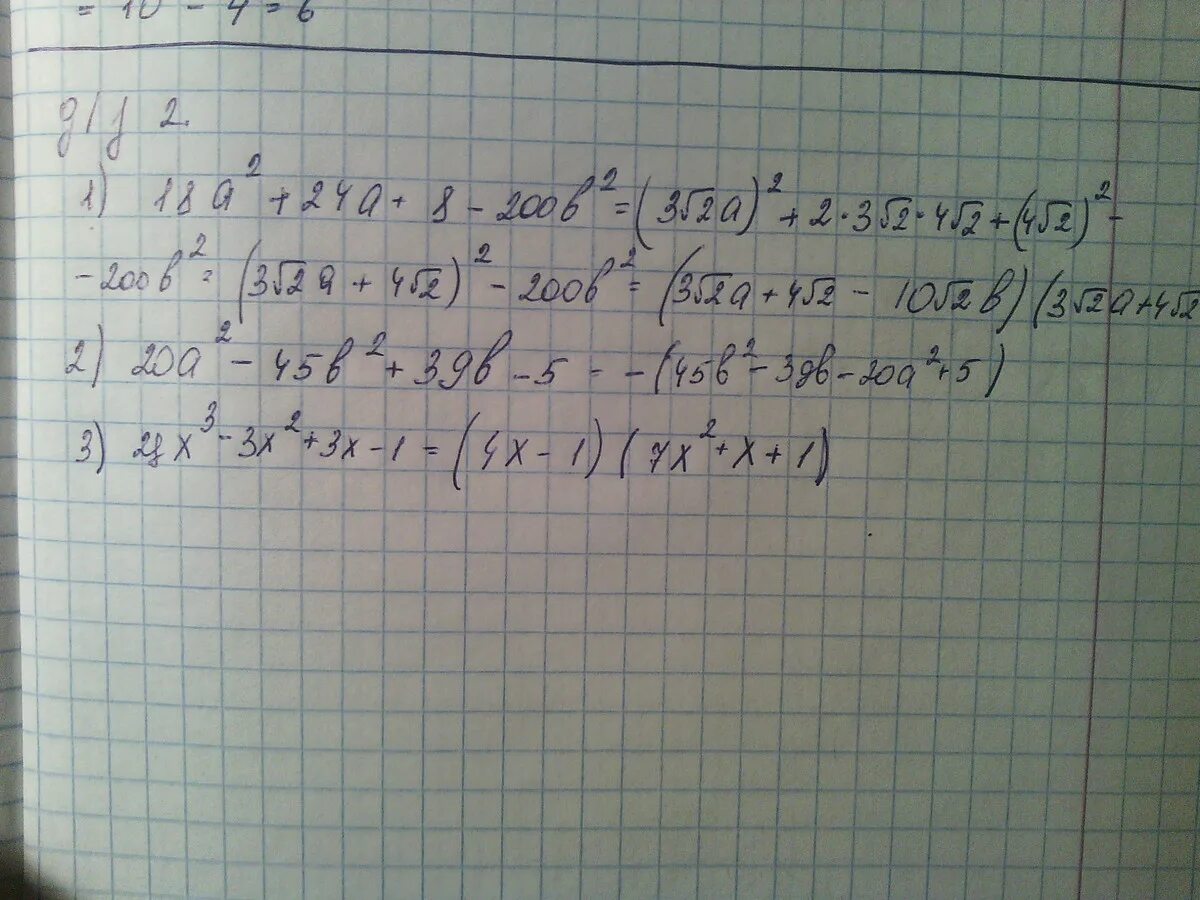 = 10 - 4 = 6
д/з 2.
1) 18a² + 24a + 8 - 200b² = (3√2a)² + 2·3√2·4√2 + (4√2)² -
- 200b² = (3√2a + 4√2)² - 200b² = (3√2a + 4√2 - 10√2b)(3√2a + 4√2
2) 20a² - 45b² + 39b - 5 = -(45b² - 39b - 20a² + 5)
3) 28x³ - 3x² + 3x - 1 = (4x - 1)(7x² + x + 1)